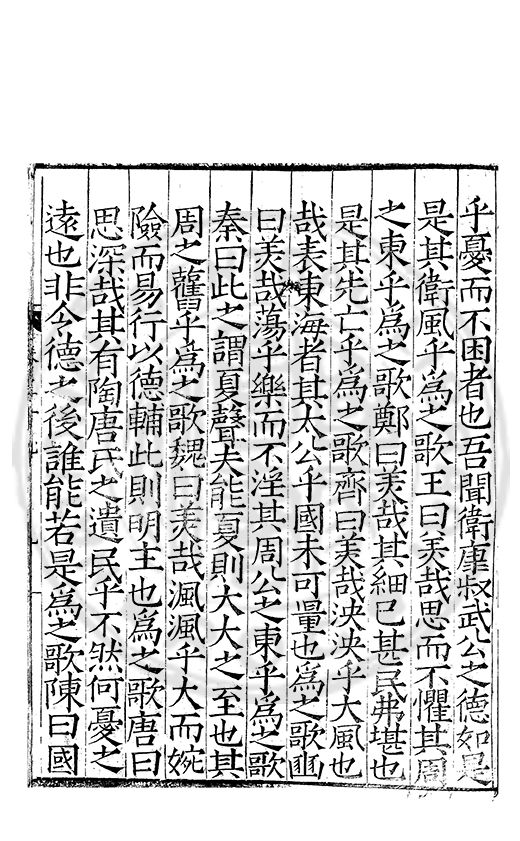 乎憂而不困者也吾聞衛康叔武公之德如是
是其衛風乎爲之歌王曰美哉思而不懼其周
之東乎爲之歌鄭曰美哉其細已甚民弗堪也
是其先亡乎爲之歌齊曰美哉泱泱乎大風也
哉表東海者其太公乎國未可量也爲之歌豳
曰美哉蕩乎樂而不淫其周公之東乎爲之歌
秦曰此之謂夏聲夫能夏則大大之至也其
周之舊乎爲之歌魏曰美哉渢渢乎大而婉
險而易行以德輔此則明主也爲之歌唐曰
思深哉其有陶唐氏之遺民乎不然何憂之
遠也非令德之後誰能若是爲之歌陳曰國